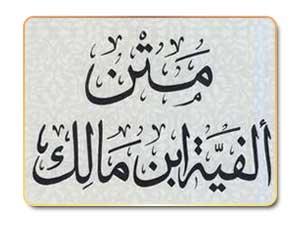 متن
ألفية ابن مالك